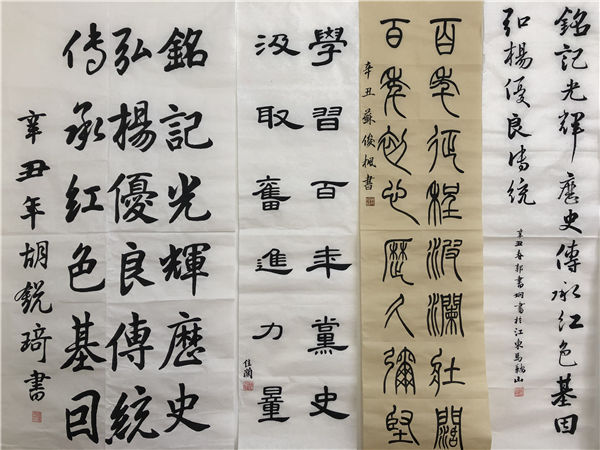 銘記光輝歷史傳承紅色基因
弘揚優良傳統
辛丑春郭書珂書於江東馬鞍山
百年征程波瀾壯闊
百年初心歷久彌堅
辛丑蘇俊楓書
學習百年黨史
汲取奮進力量
佳蘭
銘記光輝歷史
弘揚優良傳統
傳承紅色基因
辛丑年胡銳琦書